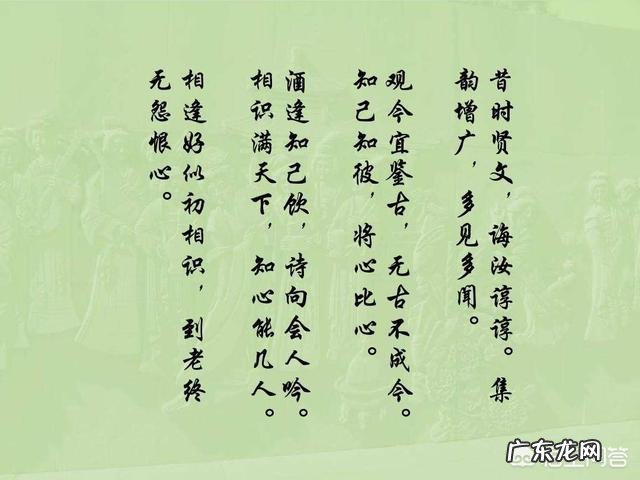 昔时贤文，诲汝谆谆。集
韵增广，多见多闻。
观今宜鉴古，无古不成今。
知己知彼，将心比心。
酒逢知己饮，诗向会人吟。
相识满天下，知心能几人。
相逢好似初相识，到老终
无怨恨心。
广东龙网